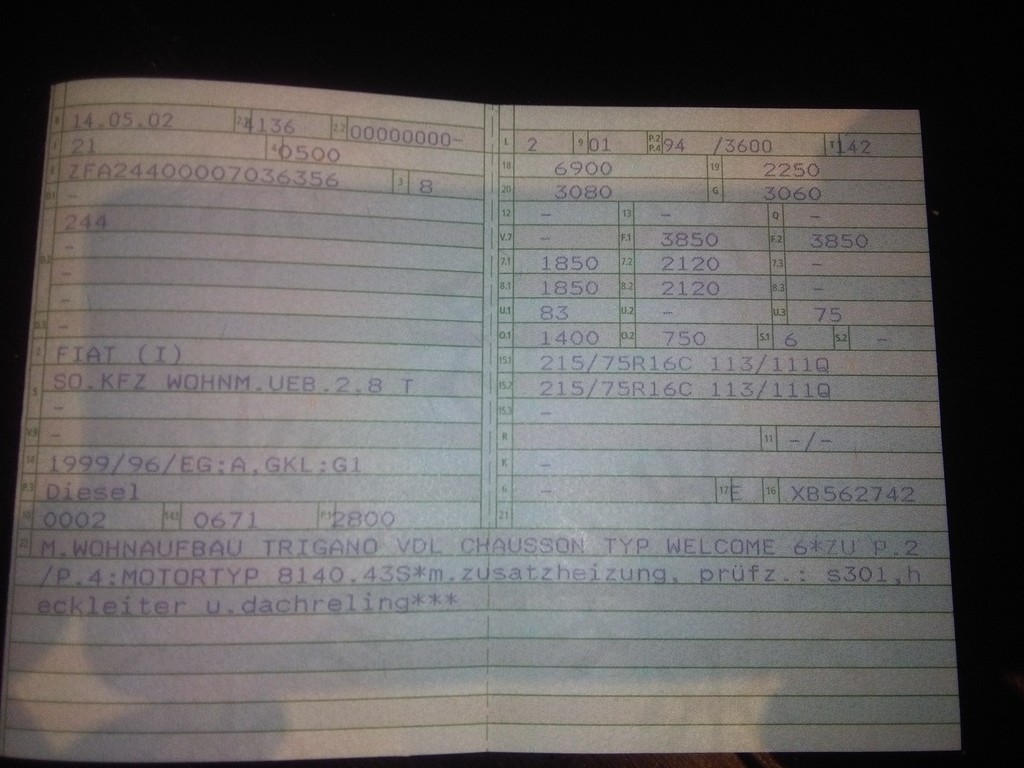 B 14.05.02 2.1 4136 2.2 00000000-
J 21 4 0500
E ZFA24400007036356 3 8
D.1 -
244
D.2 -
-
-
D.3 -
2 FIAT (I)
5 SO.KFZ WOHNM.UEB.2,8 T
-
V.9 -
14 1999/96/EG;A,GKL:G1
P.3 Diesel
10 0002 14.1 0671 P.1 2800
L 2 9 01 P.2 P.4 94 /3600 T 142
18 6900 19 2250
20 3080 G 3060
12 - 13 - Q -
V.7 - F.1 3850 F.2 3850
7.1 1850 7.2 2120 7.3 -
8.1 1850 8.2 2120 8.3 -
U.1 83 U.2 - U.3 75
O.1 1400 O.2 750 S.1 6 S.2 -
15.1 215/75R16C 113/111Q
15.2 215/75R16C 113/111Q
15.3 -
R 11 -/-
K -
6 - 17 E 16 XB562742
21
22 M.WOHNAUFBAU TRIGANO VDL CHAUSSON TYP WELCOME 6*ZU P.2
/P.4:MOTORTYP 8140.43S*m.zusatzheizung, prüfz.: s301,h
eckleiter u.dachreling***